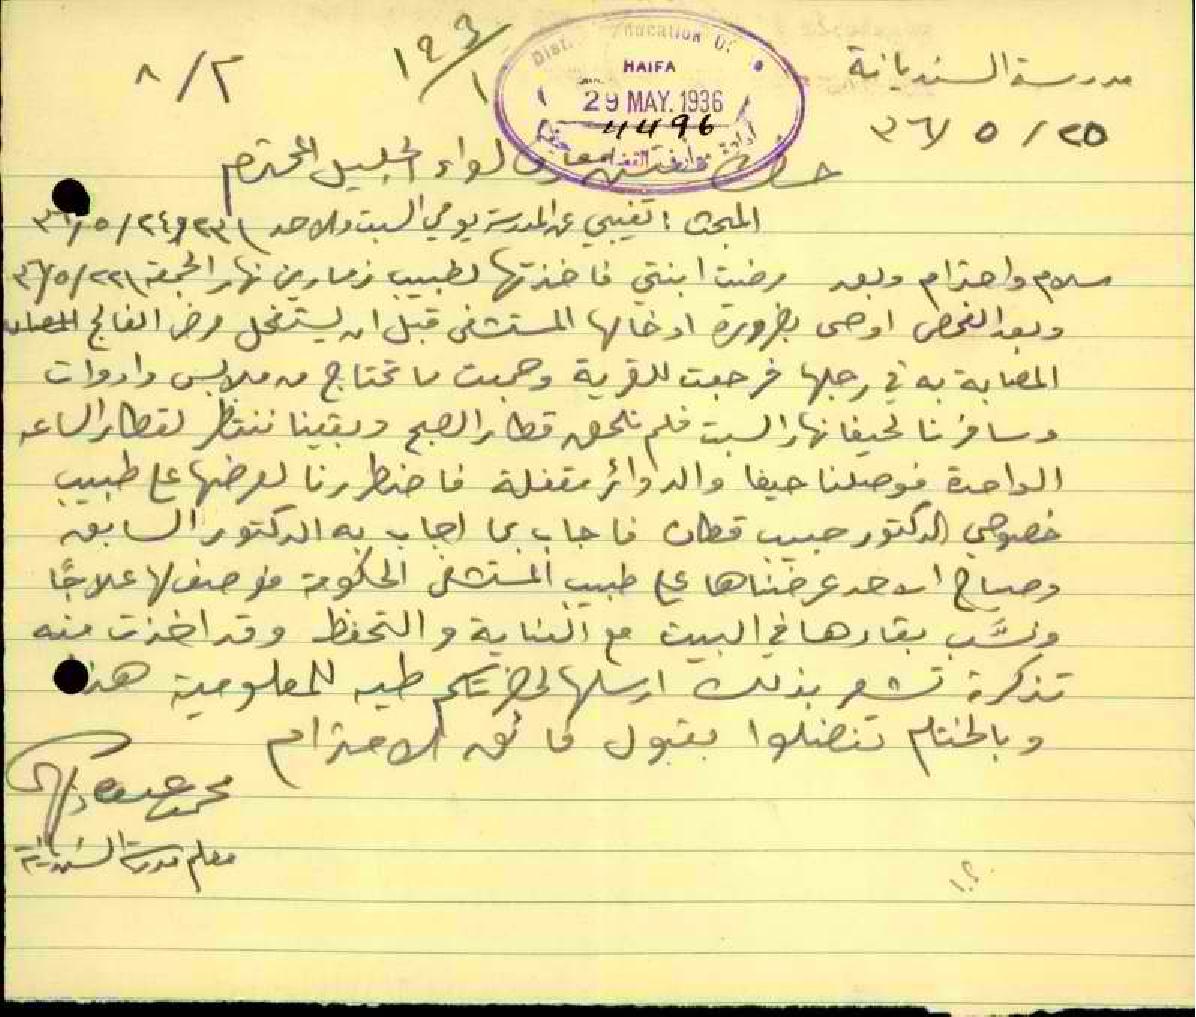 مدرسة السنديانة
٢٥ / ٥ / ٣٦
٨ / ٢
١٩٣/١
Dist. Education Of
HAIFA
29 MAY. 1936
4496
حضرة مفتش معارف لواء الجليل المحترم
المبحث : تغيبي عن المدرسة يومي السبت والاحد ٢٣ و٢٤ / ٥ / ٣٦
سلام واحترام وبعد مرضت ابنتي فاخذتها لطبيب زمارين نهار الجمعة ٢٢ / ٥ / ٣٦
وبعد الفحص اوصى بضرورة ادخالها المستشفى قبل ان يستفحل مرض الفالج
المصابة به في رجلها فرجعت للقرية وجمعت ما تحتاج من ملابس وادوات
وسافرنا لحيفا نهار السبت فلم نلحق قطار الصبح وبقينا ننتظر لقطار الساعه
الواحدة فوصلنا حيفا والدوائر مقفلة فاضطررنا لعرضها على طبيب
خصوصي الدكتور حبيب قطان فاجاب بما اجاب به الدكتور السابق
وصباح الاحد عرضناها على طبيب المستشفى الحكومة فوصف لها علاجًا
ونسَّب بقاءها في البيت مع العناية والتحفظ وقد اخذت منه
تذكرة تشعر بذلك ارسلها لحضرتكم طيه للمعلومية هذا
وبالختام تفضلوا بقبول فائق الاحترام
محمد
معلم مدرسة السنديانة